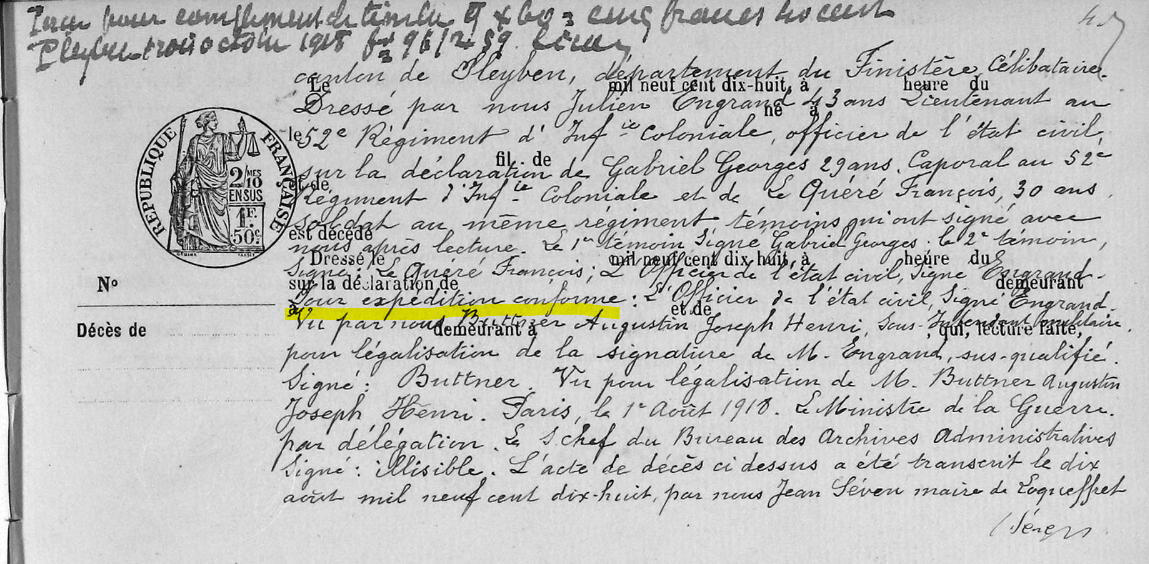 Pleyben trois octobre 1918
canton de Pleyben, département du Finistère, Célibataire.
Le mil neuf cent dix-huit, à heure du
Dressé par nous Julien Engrand 43 ans Lieutenant au
né à
le
52e Régiment d'Infie Coloniale, officier de l'état civil,
sur la déclaration de Gabriel Georges 29 ans. Caporal au 52e
fil de
et de
Régiment d'Infie Coloniale et de Le Queré François, 30 ans
soldat au même régiment témoins qui ont signé avec
est décédé
nous après lecture. Le 1er témoin Signé Gabriel Georges. le 2e témoin,
Dressé le mil neuf cent dix-huit à heure du
Signé: Le Queré François; L'Officier de l'état civil, Signé Engrand.
sur la déclaration de demeurant
Pour expédition conforme: L'Officier de l'état civil, Signé Engrand.
à et de
Vu par nous Buttner Augustin Joseph Henri, Sous-Intendant militaire,
demeurant à qui, lecture faite,
pour légalisation de la signature de M. Engrand, sus-qualifié.
Signé: Buttner. Vu pour légalisation de M. Buttner Augustin
Joseph Henri. Paris, le 1er Août 1918. Le Ministre de la Guerre.
par délégation. Le S. chef du Bureau des Archives Administratives
Signé: illisible. L'acte de décès ci dessus a été transcrit le dix
août mil neuf cent dix-huit, par nous Jean Séven maire de Loqueffret
RÉPUBLIQUE FRANÇAISE
2 MES
10
EN SUS
1F.
50c.
No
Décès de